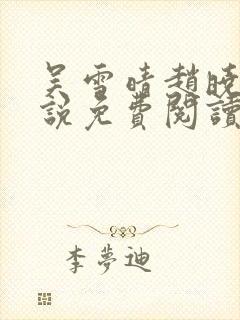 吴雪晴趙曉
說免費閱讀
李夢迪